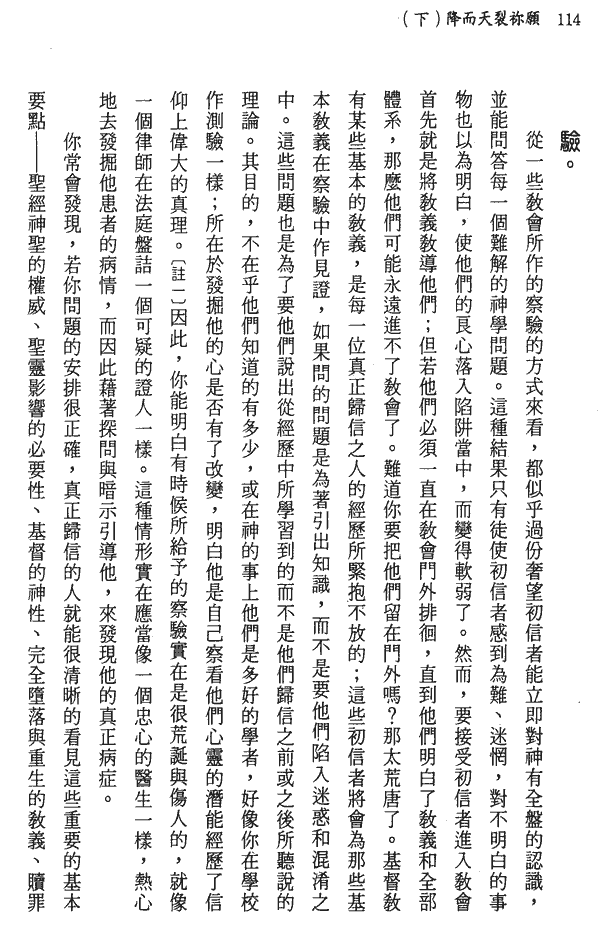 114　願祢裂天而降（下）
驗。
從一些教會所作的察驗的方式來看，都似乎過份奢望初信者能立即對神有全盤的認識，
並能問答每一個難解的神學問題。這種結果只有徒使初信者感到為難、迷惘，對不明白的事
物也以為明白，使他們的良心落入陷阱當中，而變得軟弱了。然而，要接受初信者進入教會
首先就是將教義教導他們；但若他們必須一直在教會門外排徊，直到他們明白了教義和全部
體系，那麼他們可能永遠進不了教會了。難道你要把他們留在門外嗎？那太荒唐了。基督教
有某些基本的教義，是每一位真正歸信之人的經歷所緊抱不放的；這些初信者將會為那些基
本教義在察驗中作見證，如果問的問題是為著引出知識，而不是要他們陷入迷惑和混淆之
中。這些問題也是為了要他們說出從經歷中所學習到的而不是他們歸信之前或之後所聽說的
理論。其目的，不在乎他們知道的有多少，或在神的事上他們是多好的學者，好像你在學校
作測驗一樣；所在於發掘他的心是否有了改變，明白他是自己察看他們心靈的潛能經歷了信
仰上偉大的真理。〔註一〕因此，你能明白有時候所給予的察驗實在是很荒誕與傷人的，就像
一個律師在法庭盤詰一個可疑的證人一樣。這種情形實在應當像一個忠心的醫生一樣，熱心
地去發掘他患者的病情，而因此藉著探問與暗示引導他，來發現他的真正病症。
你常會發現，若你問題的安排很正確，真正歸信的人就能很清晰的看見這些重要的基本
要點——聖經神聖的權威、聖靈影響的必要性、基督的神性、完全墮落與重生的教義、贖罪